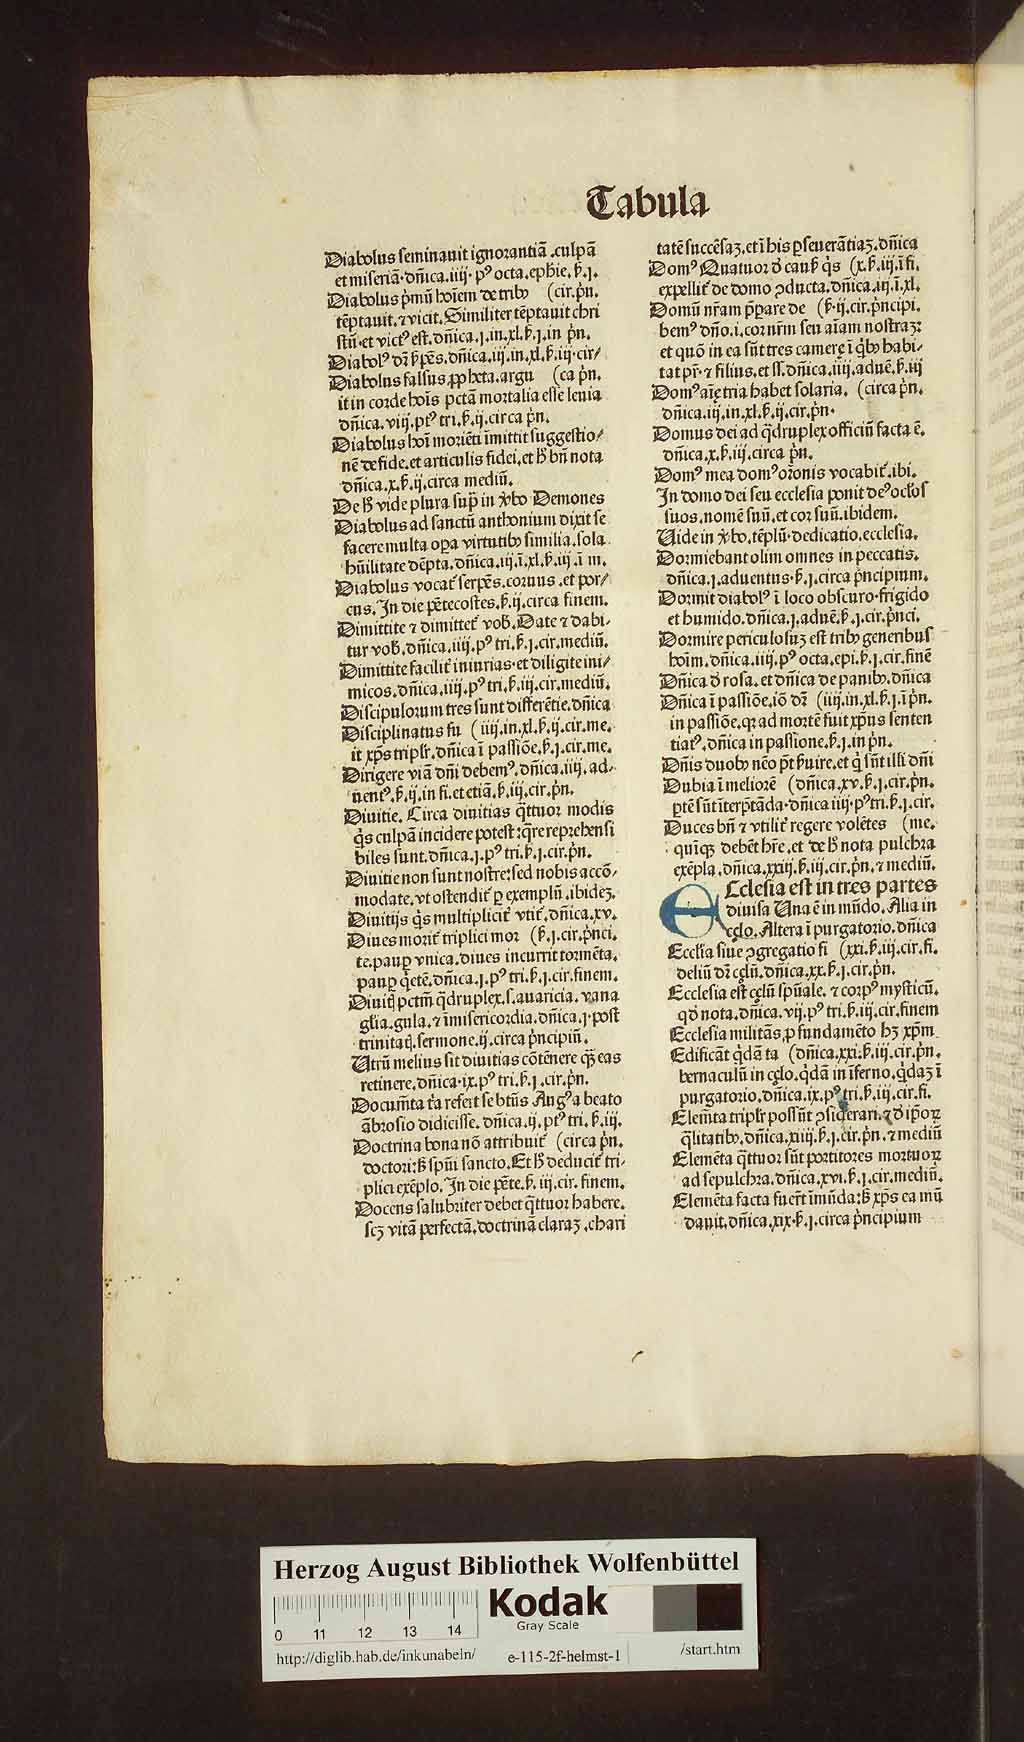 Tabula
Diabolus seminauit ignorantiã.culpã
et miseriã.dñica.iiij.pꝰ octa.ephie.ẜ.j.
Diabolus p̃mũ hoĩem de tribꝰ (cir.p̃n.
tẽptauit.⁊ vicit.Similiter tẽptauit chri
stũ.et victꝰ est.dñica.j.in.xl.ẜ.j.in p̃n.
Diabolꝰ dr̃ ẜpẽs.dñica.iij.in.xl.ẜ.iij.cir/
Diabolus falsus ꝓpheta.argu (ca p̃n.
it in corde hoĩs pctã mortalia esse leuia
dñica.viij.ptꝰ tri.ẜ.ij.circa p̃n.
Diabolus hoĩ moriẽti ĩmittit suggestio/
nẽ de fide.et articulis fidei.et ɧ bñ nota
dñica.x.ẜ.ij.circa mediũ.
De ɧ vide plura supͣ in v̾bo Demones
Diabolus ad sanctũ anthonium dixit se
facere multa oꝑa virtutibꝰ similia.sola
hũilitate dẽpta.dñica.iij.ĩ.xl.ẜ.iij.ĩ m.
Diabolus vocat̃ serpẽs.coruus.et por/
cus.In die pẽtecostes.ẜ.ij.circa finem.
Dimittite ⁊ dimittet̃ vob̃.Date ⁊ dabi-
tur vob̃.dñica.iiij.pꝰ tri.ẜ.j.cir.mediũ.
Dimittite facilit̃ iniurias.et diligite ini/
micos.dñica.iiij.pꝰ tri.ẜ.iij.cir.mediũ.
Discipulorum tres sunt differẽtie.dñica
Disciplinatus fu (iiij.in.xl.ẜ.ij.cir.me.
it xp̃s tripl̃r.dñica ĩ passiõe.ẜ.j.cir.me.
Dirigere viã dñi debemꝰ.dñica.iiij.ad-
uentꝰ.ẜ.ij.in fi.et etiã.ẜ.iij.cir.p̃n.
Diuitie. Circa diuitias q̃ttuor modis
q̃s culpã incidere potest:q̃re reprehensi
biles sunt.dñica.j.pꝰ tri.ẜ.j.cir.p̃n.
Diuitie non sunt nostre:sed nobis accõ-
modate.vt ostendit̃ ꝑ exemplũ.ibideꝫ.
Diuitijs q̃s multiplicit̃ vtit̃.dñica.xv.
Diues morit̃ triplici mor (ẜ.j.cir.p̃nci.
te.paupꝑ vnica.diues incurrit tormẽta.
pauꝑ q̃etẽ.dñica.j.pꝰ tri.ẜ.j.cir.finem.
Diuitũ pctm̃ q̃druplex.s.auaricia.vana
gl̃ia.gula.⁊ ĩmisericordia.dñica.j.post
trinitatẽ.sermone.ij.circa p̃ncipiũ.
Utrũ melius sit diuitias cõtẽnere qꝫ̃ eas
retinere.dñica.ix.pꝰ tri.ẜ.j.cir.p̃n.
Documẽta tr̃a refert se btũs Augꝰ a beato
ãbrosio didicisse.dñica.ij.ptꝰ tri.ẜ.iij.
Doctrina bona nõ attribuit̃ (circa p̃n.
doctori:ẜ spũi sancto.Et ɧ deducit̃ tri-
plici exẽplo.In die pẽte.ẜ.iij.cir.finem.
Docens salubriter debet q̃ttuor habere.
scꝫ vitã perfectã.doctrinã claraꝫ.chari
tatẽ succẽsaꝫ.et ĩ his ꝑseuerãtiaꝫ.dñica
Domꝰ Quatuor d̾ causẜ q̃s (x.ẜ.iij.ĩ fi.
expellit̃ de domo ꝯducta.dñica.iij.ĩ.xl.
Domũ nr̃am p̃ꝑare de (ẜ.ij.cir.p̃ncipi.
bemꝰ dño.i.cor nr̃m seu aĩam nostraꝫ:
et quõ in ea sũt tres camere ĩ q̃bꝰ habi-
tat pr̃.⁊ filius.et ss̃.dñica.iiij.aduẽ.ẜ.iij
Domꝰ aĩe tria habet solaria. (circa p̃n.
dñica.iij.in.xl.ẜ.ij.cir.p̃n.
Domus dei ad q̃druplex officiũ facta ẽ.
dñica.x.ẜ.iij.circa p̃n.
Domꝰ mea domꝰ or̃onis vocabit̃.ibi.
In domo dei seu ecclesia ponit deꝰ oc̃los
suos.nomẽ suũ.et cor suũ.ibidem.
Uide in v̾bo.tẽplũ.dedicatio.ecclesia.
Dormiebant olim omnes in peccatis.
dñica.j.aduentus.ẜ.j.circa p̃ncipium.
Dormit diabolꝰ ĩ loco obscuro.frigido
et humido.dñica.j.aduẽ.ẜ.j.cir.p̃nci.
Dormire periculosuꝫ est tribꝰ generibus
hoĩm.dñica.iiij.pꝰ octa.epi.ẜ.j.cir.finẽ
Dñica d̾ rosa.et dñica de panibꝰ.dñica
Dñica ĩ passiõe.iõ dr̃ (iiij.in.xl.ẜ.j.ĩ p̃n.
in passiõe.qꝛ ad mortẽ fuit xp̃us senten
tiatꝰ.dñica in passione.ẜ.j.in p̃n.
Dñis duobꝰ nẽo pt̃ ẜuire.et q̃ sũt illi dñi
Dubia ĩ meliorẽ (dñica.xv.ẜ.j.cir.p̃n.
ꝑtẽ sũt ĩterp̃tãda.dñica iiij.pꝰ tri.ẜ.j.cir.
Duces bñ ⁊ vtilit̃ regere volẽtes (me.
quĩqꝫ debẽt hr̃e.et de ɧ nota pulchra
exẽpla.dñica.xxiij.ẜ.iij.cir.p̃n.⁊ mediũ.
Ecclesia est in tres partes
diuisa Una ẽ in mũdo. Alia in
celo. Altera ĩ purgatorio.dñica
Eccl̃ia siue ꝯgregatio fi (xxi.ẜ.iij.cir.fi.
deliũ dr̃ celũ.dñica.xx.ẜ.j.cir.p̃n.
Ecclesia est celũ spũale.⁊ corpꝰ mysticũ.
qd̾ nota.dñica.vij.pꝰ tri.ẜ.iij.cir.finem
Ecclesia militãs ꝓ fundamẽto hꝫ xp̃m
Edificãt q̃dã ta (dñica.xxi.ẜ.iij.cir.p̃n.
bernaculũ in celo.q̃dã in ĩferno.q̃daꝫ ĩ
purgatorio.dñica.ix.pꝰ tri.ẜ.iij.cir.fi.
Elemẽta tripl̃r possũt ꝯsiderari.⁊ d̾ ip̃oꝝ
q̃litatibꝰ.dñica.xiiij.ẜ.j.cir.p̃n.⁊ mediũ
Elemẽta q̃ttuor sũt portitores mortuoꝝ
ad sepulchra.dñica.xvi.ẜ.j.cir.mediũ.
Elemẽta facta fuer̃t ĩmũda:ẜ xp̃s ea mũ
dauit.dñica.xix.ẜ.j.circa p̃ncipium
Herzog August Bibliothek Wolfenbüttel
Kodak
Gray Scale
0 11 12 13 14
http://diglib.hab.de/inkunabeln/ e-115-2f-helmst-1 /start.htm